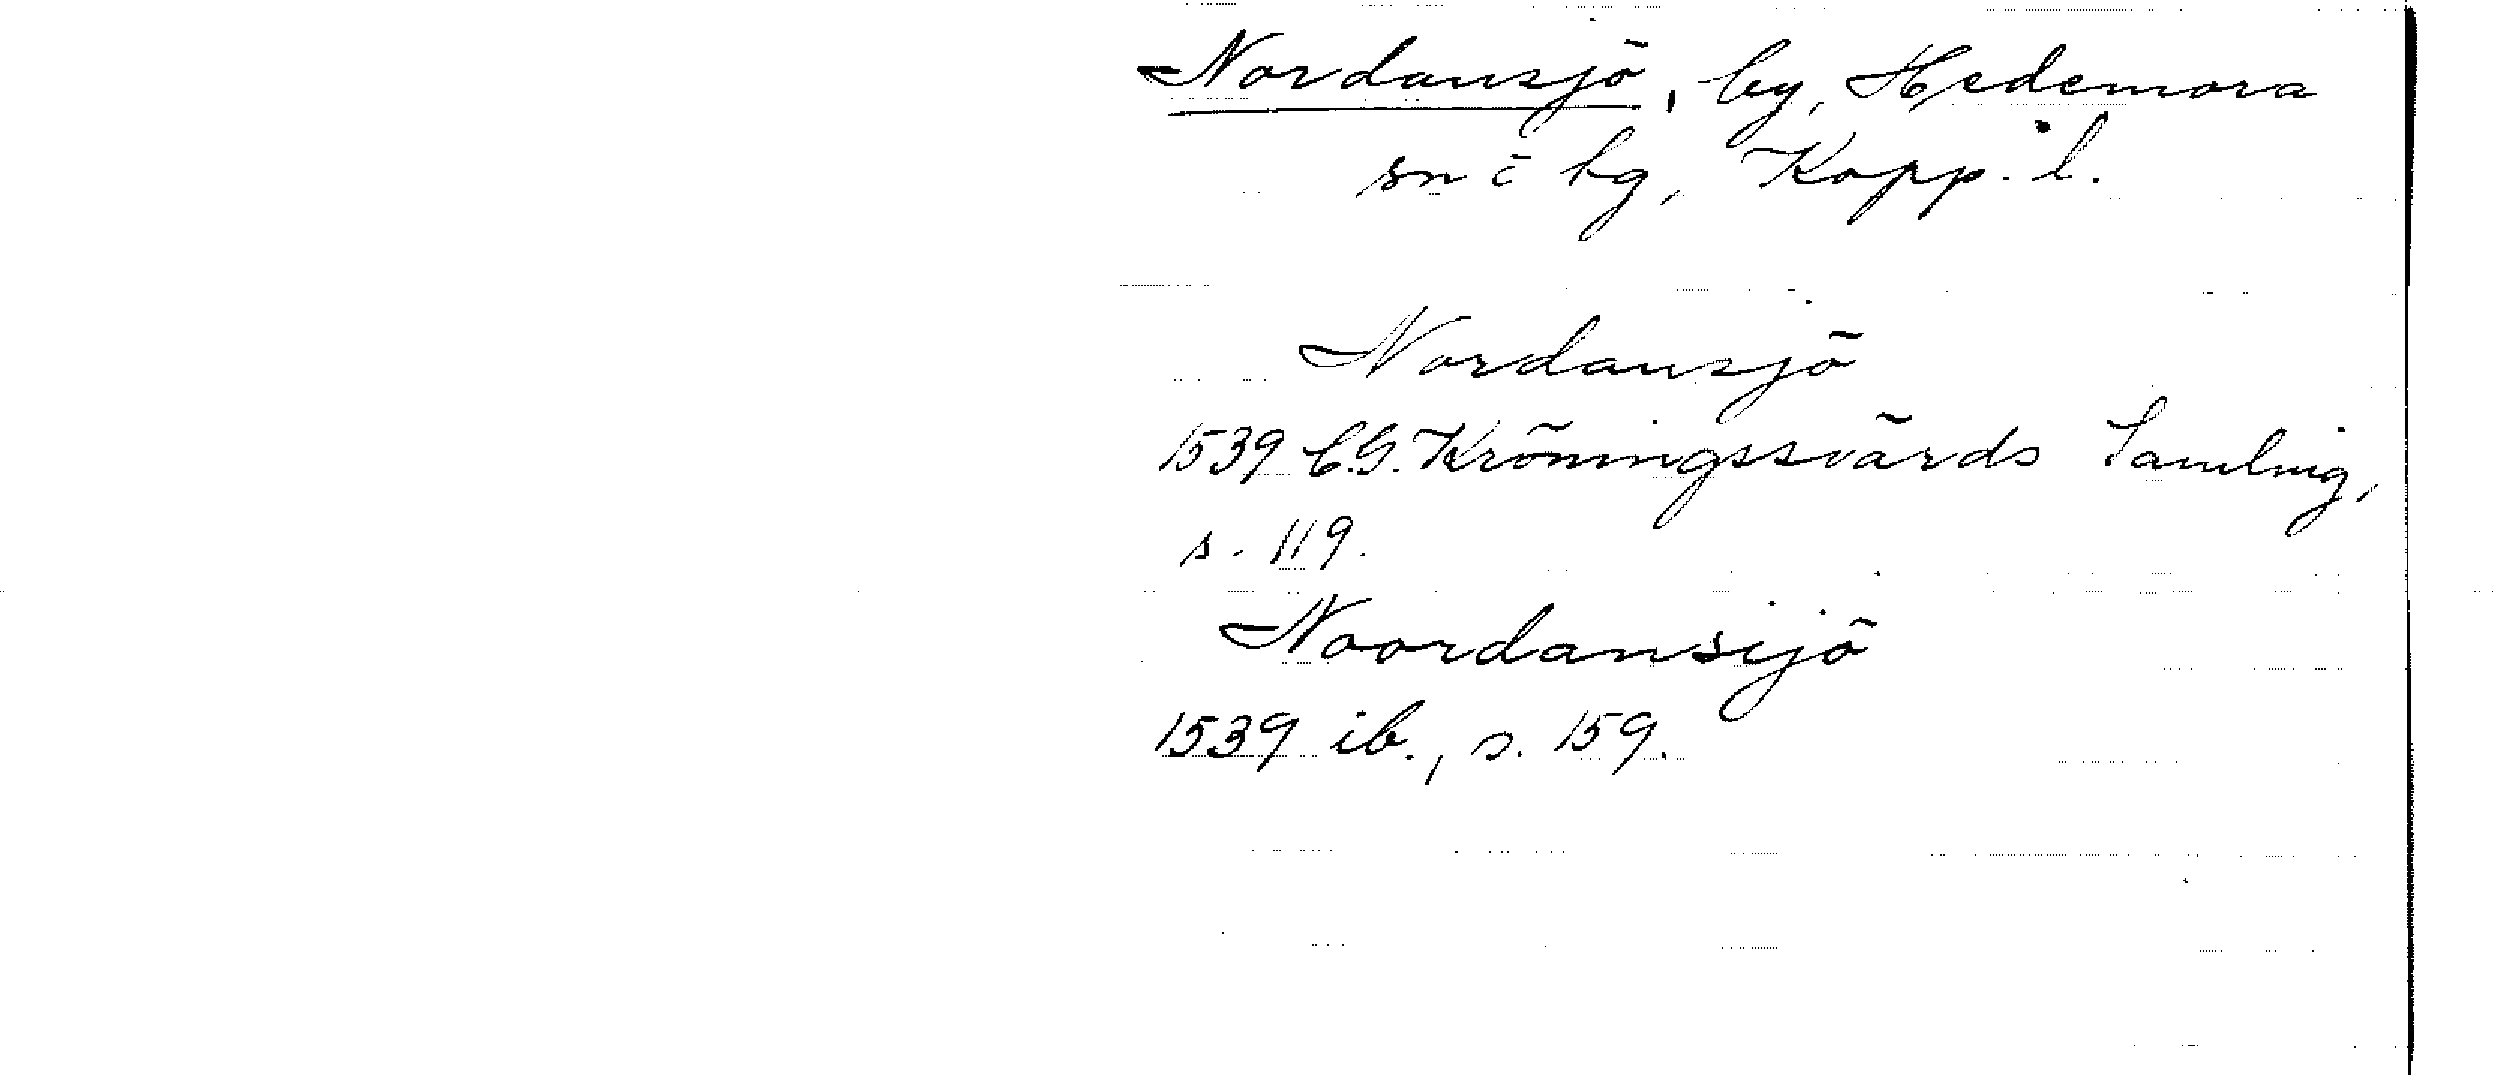 Nordansjö, by, Hedemora
sn o hg, Kopp. l.
Nordansjö
1539 C.G. Kröningssvärds Samling,
s. 119.
Noordansijö
1539 ib., s. 159.